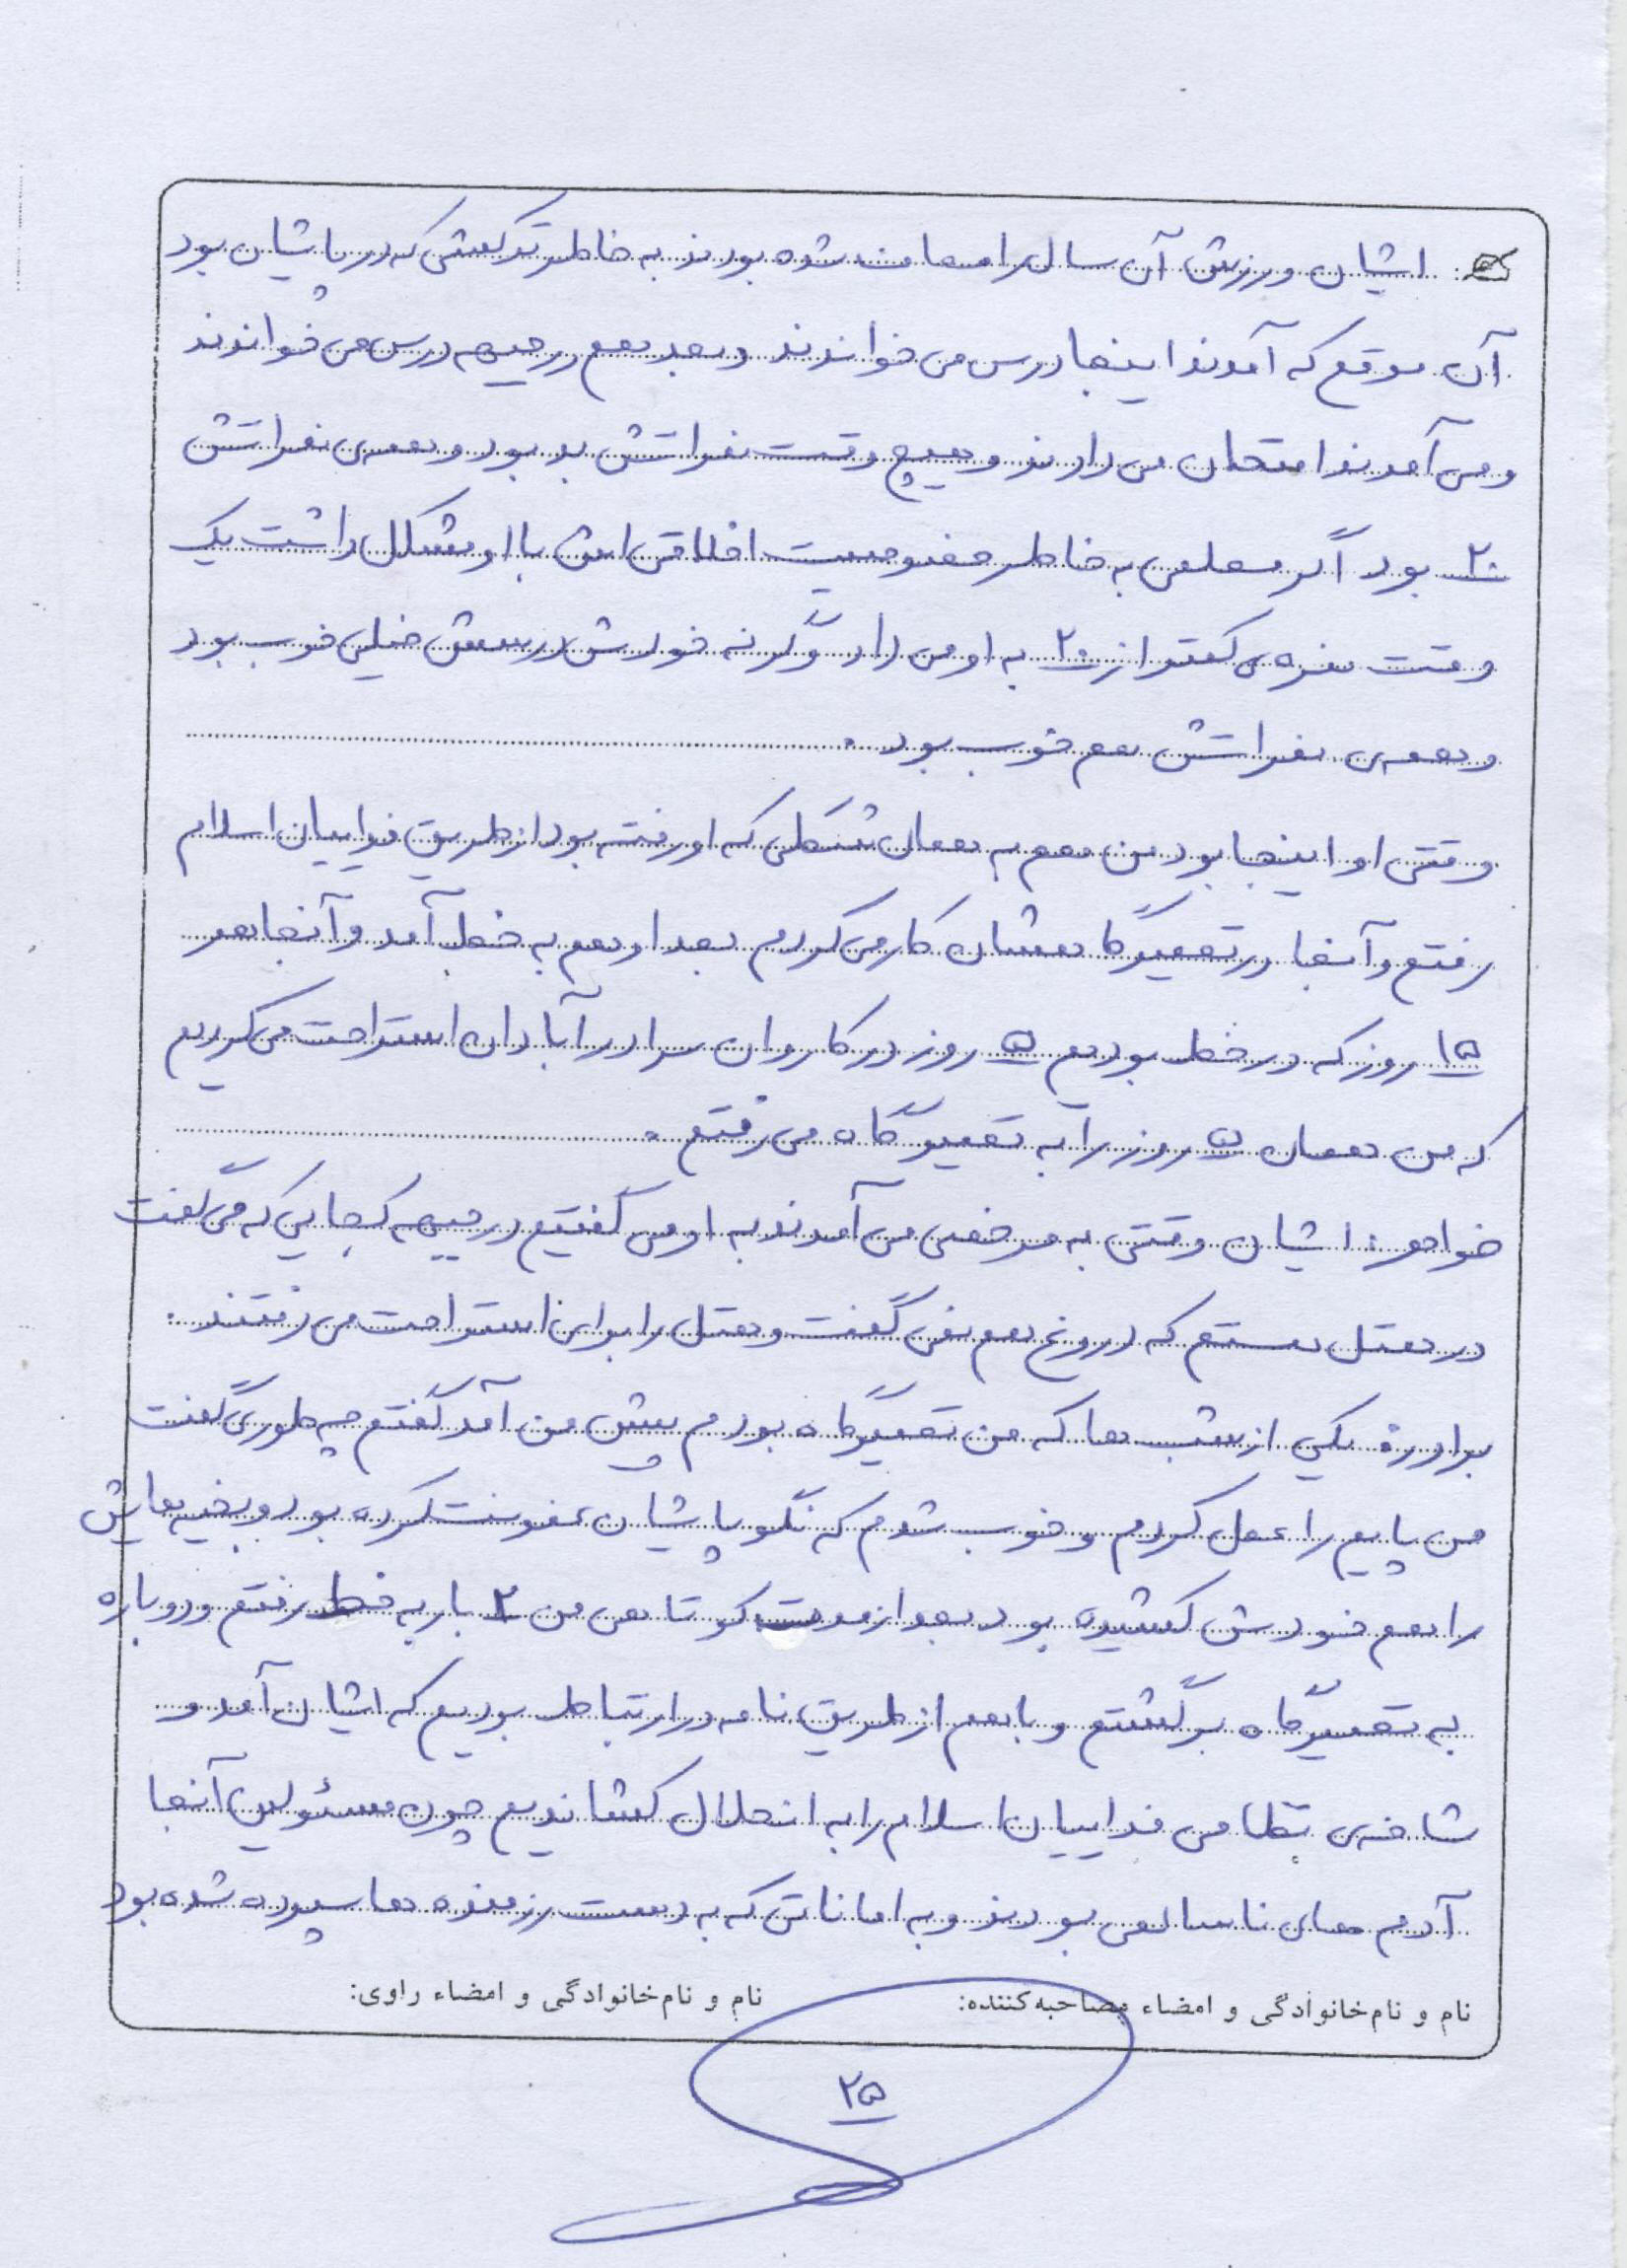 ایشان ورزش آن سال را معاف شده بودند به خاطر ترکشی که در پایشان بود
آن موقع که آمدند اینجا درس می خواندند و بعد هم در جبهه درس می خواندند
و می آمدند امتحان می دادند و هیچ وقت نمراتش بد نبود و همه ی نمراتش
۲۰ بود اگر معلمی به خاطر خصوصیت اخلاقی اش با او مشکل داشت یک
وقت نمره ی کمتر از ۲۰ به او می داد وگرنه خودش درسش خیلی خوب بود
و همه ی نمراتش هم خوب بود .
وقتی او اینجا بود من هم به همان شکلی که او رفته بود از طریق فداییان اسلام
رفتم و آنجا در تعمیرگاهشان کار می کردم بعد او هم به خط آمد و آنجا هر
۱۵ روز که در خط بودیم ۵ روز در کاروان سرا در آبادان استراحت می کردیم
که من همان ۵ روز را به تعمیرگاه می رفتم .
خواهر : ایشان وقتی به مرخصی می آمدند به او می گفتیم در جبهه کجایی که می گفت
در هتل هستم که دروغ هم نمی گفت و هتل را برای استراحت می رفتند .
برادر : یکی از شب ها که من تعمیرگاه بودم پیش من آمد گفتم چه طوری گفت
من پایم را عمل کردم و خوب شدم که نگو پایشان عفونت کرده بود و بخیه هایش
را هم خودش کشیده بود بعد از مدت کوتاهی من ۲ بار به خط رفتم و دوباره
به تعمیرگاه برگشتم و با هم از طریق نامه در ارتباط بودیم که ایشان آمد و
شاخه ی نظامی فداییان اسلام را به انحلال کشاندیم چون مسئولین آنجا
آدم های ناسالمی بودند و به اماناتی که به دست رزمنده ها سپرده شده بود
نام و نام‌خانوادگی و امضاء مصاحبه‌کننده: نام و نام‌خانوادگی و امضاء راوی:
۲۵